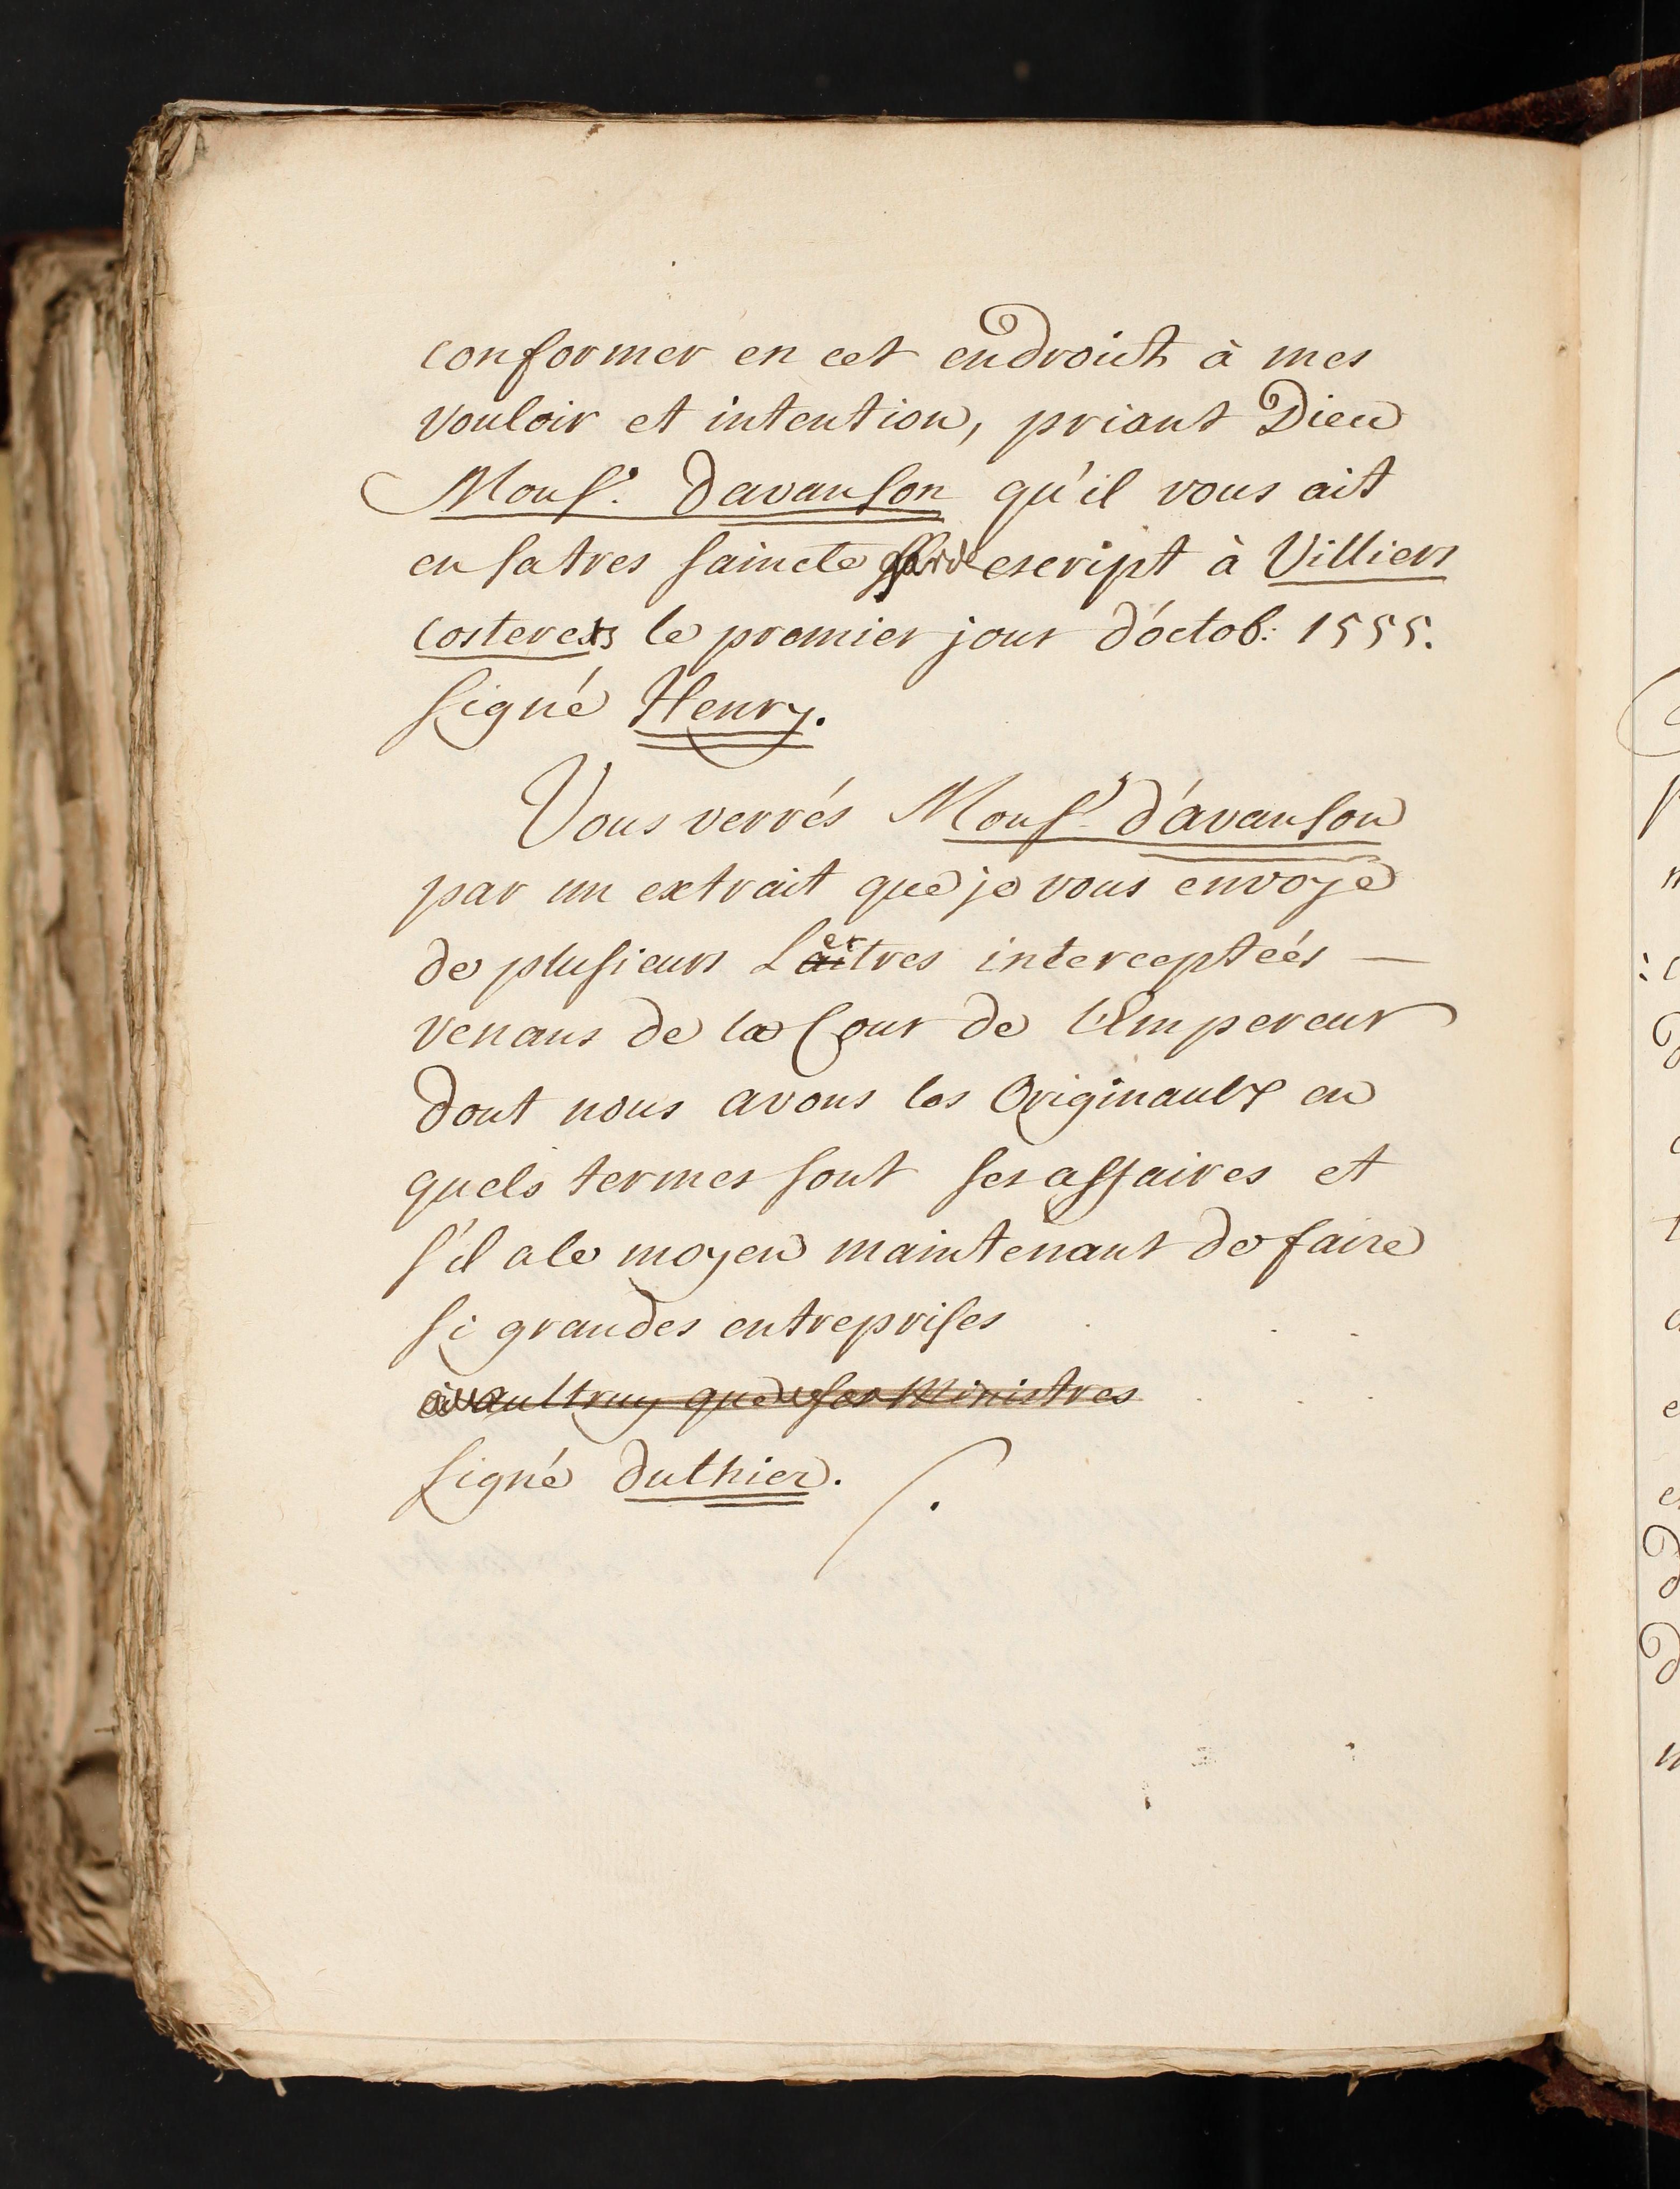 conformer en cet endroict à mes
vouloir et intention, priant Dieu
Mons.r Davanson qu'il vous ait
en sa tres saincte garde escript à Villiers
costerets le premier jour d'octob: 1555.
signé Henry.
Vous verrés Mons.r d'avanson
par un extrait que je vous envoye
de plusieurs Lettres interceptées —
venans de la Cour de l'Empereur
dont nous avons les Originaulx en
quels termes sont ses affaires et
s'il a le moyen maintenant de faire
si grandes entreprises
aultruy que ses Ministres
signé duthier.